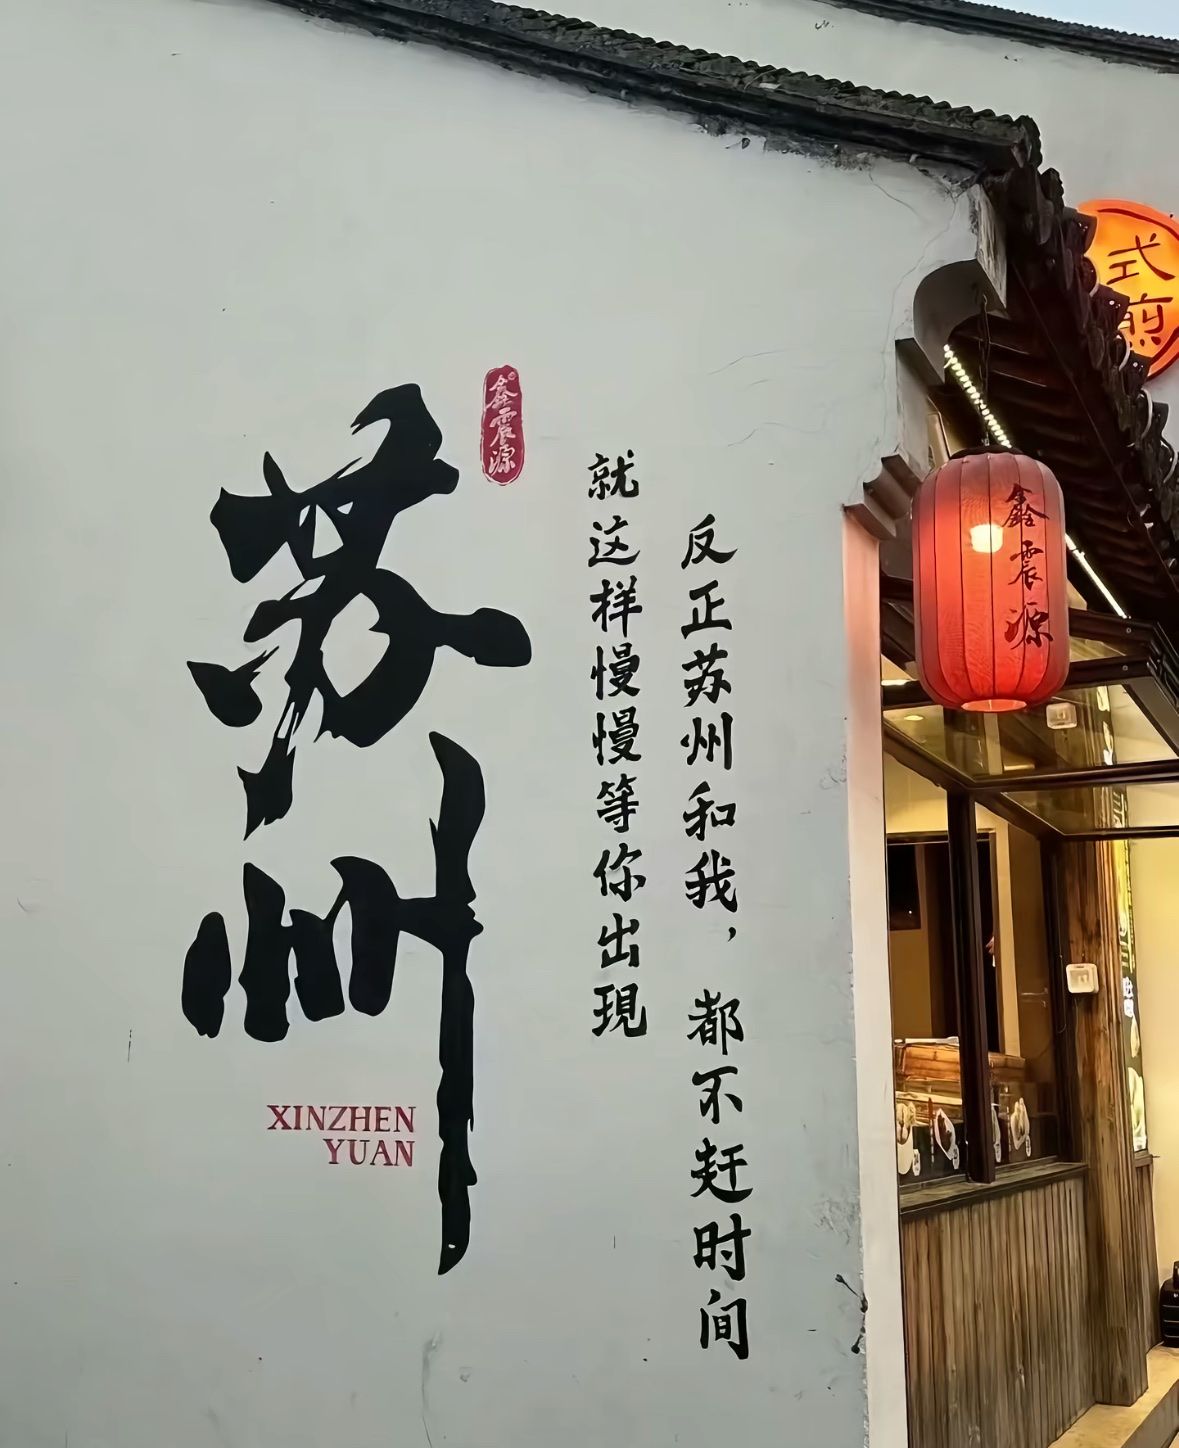 苏州
鑫震源
XINZHEN
YUAN
反正苏州和我，都不赶时间
就这样慢慢等你出現
鑫震源
式
煎